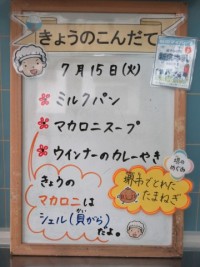 きょうのこんだて
7月15日(火)
ミルクパン
マカロニスープ
ウインナーのカレーやき
きょうの
マカロニは
シェル(貝がら)
だよ。
畑のめぐみ
とれた
たまねぎ